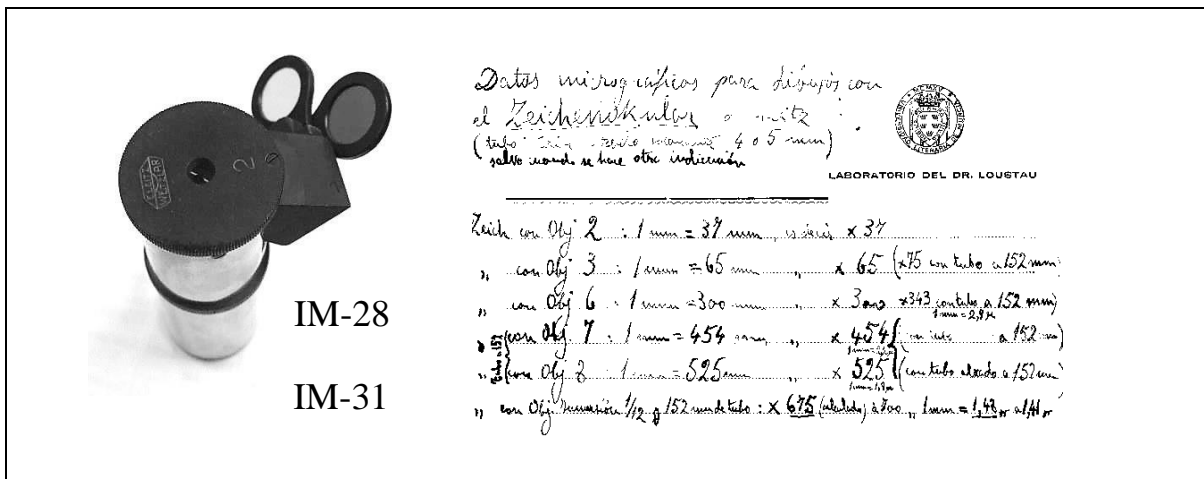 E. LEITZ
WETZLAR
2
IM-28
IM-31
Datos micrográficos para dibujos con
el Zeichenokular
(tubo 4 o 5 mm)
salvo cuando se hace otra indicación
LABORATORIO DEL DR. LOUSTAU
Zeich con Obj 2 : 1 mm = 37 mm, es decir x 37
„ con Obj 3 : 1 mm = 65 mm „ x 65 (x75 con tubo a 152 mm)
„ con Obj 6 : 1 mm = 300 mm „ x 300 x343 con tubo a 152 mm)
1 mm = 2,9 µ
„ con Obj 7 : 1 mm = 454 mm „ x 454 (con tubo a 152 mm)
tubo a 152
„ con Obj 8 : 1 mm = 525 mm „ x 525 (con tubo alzado a 152 mm
„ con Obj. Inmersión 1/12 y 152 mm de tubo : x 675 (calculado) à 700 „ 1 mm = 1,48 µ a 1,41 µ